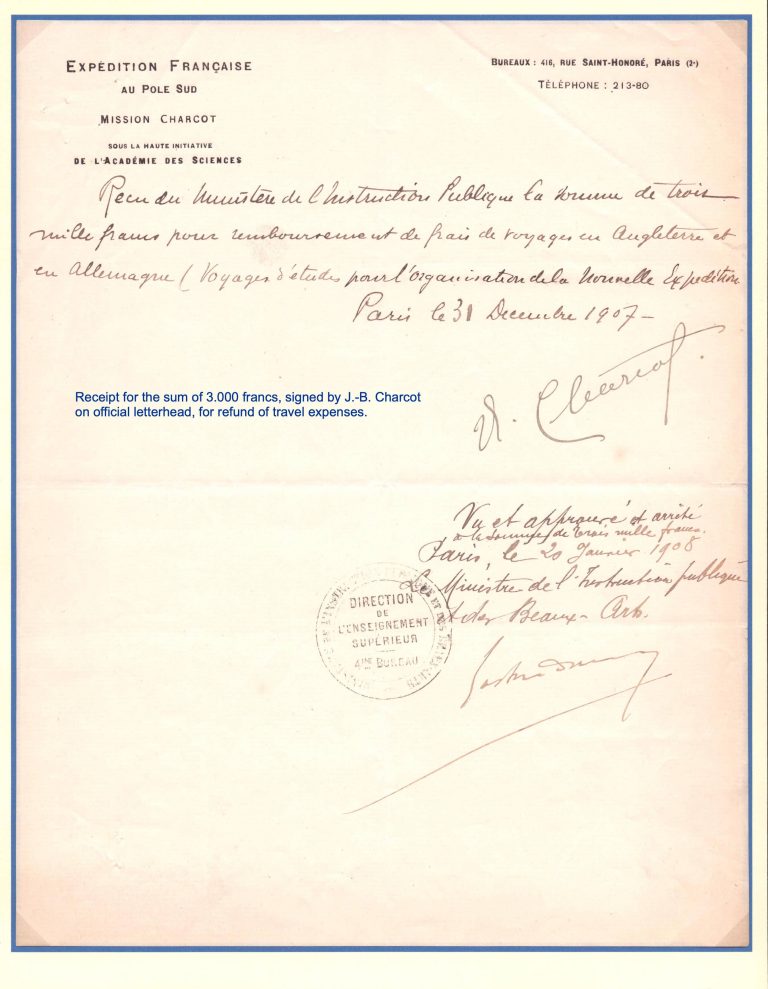 EXPÉDITION FRANÇAISE
AU POLE SUD
MISSION CHARCOT
SOUS LA HAUTE INITIATIVE
DE L'ACADÉMIE DES SCIENCES
BUREAUX : 416, RUE SAINT-HONORÉ, PARIS (2e)
TÉLÉPHONE : 213-80
Recu du Ministère de l'Instruction Publique la somme de trois
mille francs pour remboursement de frais de voyages en Angleterre et
en Allemagne (Voyages d'études pour l'organisation de la Nouvelle Expedition
Paris le 31 Decembre 1907 -
Receipt for the sum of 3.000 francs, signed by J.-B. Charcot
on official letterhead, for refund of travel expenses.
Charcot
Vu et approuvé et arrêté
à la somme de trois mille francs.
Paris, le 20 Janvier 1908
Le Ministre de l'Instruction publique
et des Beaux-Arts.
DIRECTION
DE
L'ENSEIGNEMENT
SUPÉRIEUR
4me BUREAU